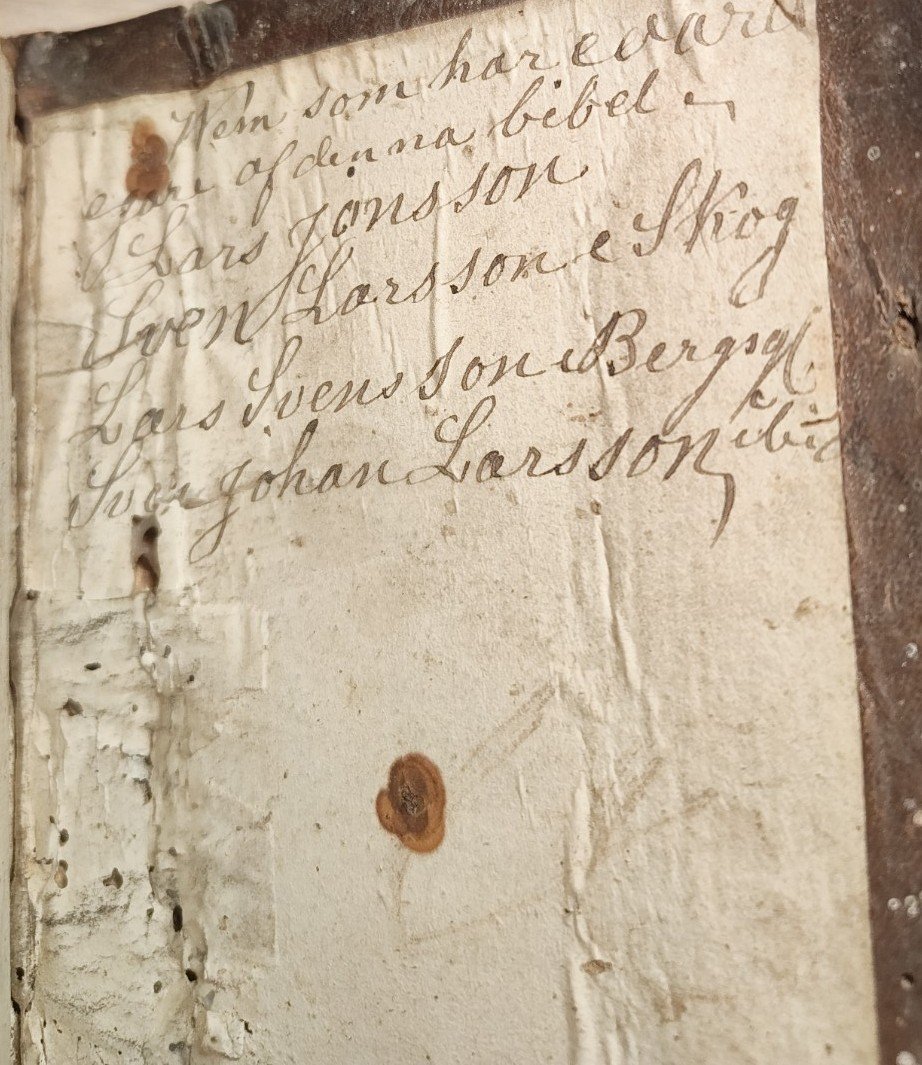 Wem som har ewarit
egare af denna bibel
Lars Jonsson
Sven Larsson e Skog
Lars Svensson i Bergsgl
Sven Johan Larsson ibid